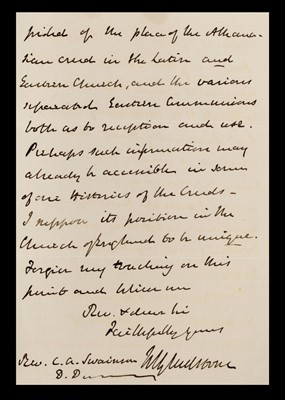 of the place of the Athana-
sian creed in the Latin and
Eastern Church, and the various
separated Eastern Communions
both as to reception and use.
Perhaps such information may
already be accessible in some
of our Histories of the Creeds -
I suppose its position in the
Church of England to be unique.
Forgive my touching on this
point and believe me
Rev. & dear Sir
Faithfully yours
Rev. C. A. Swainson WEGladstone
D.D.